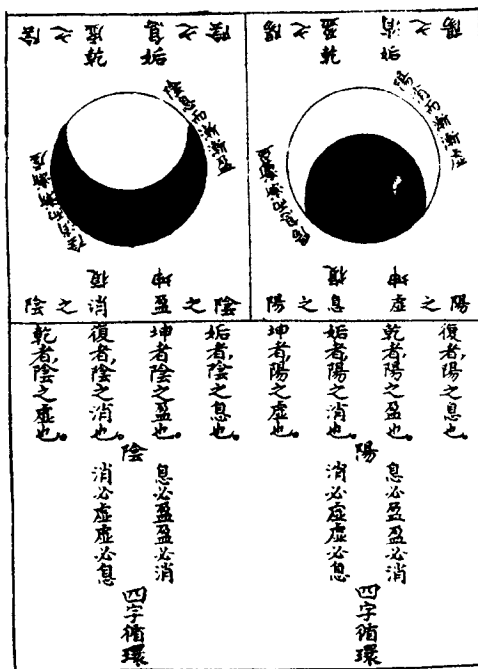 陽之消
姤
陽之盈
乾
陽消而漸漸虛
陽息而漸漸盈
坤
陽之虛
復
陽之息
陰之息
姤
陰之虛
乾
陰息而漸漸盈
陰消而漸漸虛
坤
陰之盈
復
陰之消
復者,陽之息也。
乾者,陽之盈也。
姤者,陽之消也。
坤者,陽之虛也。
陽
息必盈盈必消
消必虛虛必息
四字循環
姤者,陰之息也。
坤者,陰之盈也。
復者,陰之消也。
乾者,陰之虛也。
陰
息必盈盈必消
消必虛虛必息
四字循環